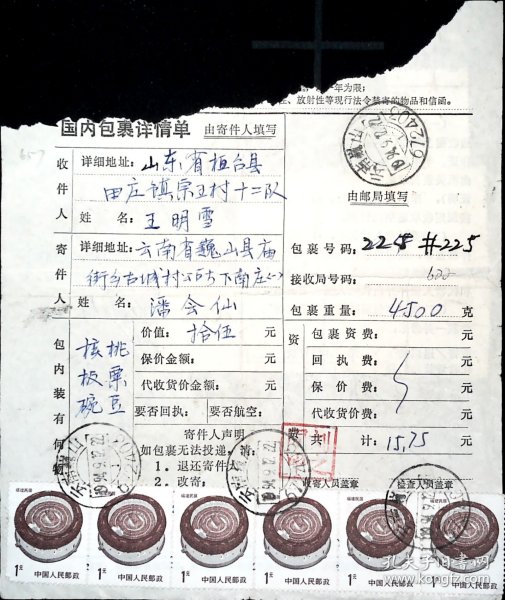 年为限；
放射性等现行法令禁寄的物品和信函。
国内包裹详情单 由寄件人填写
收件人
详细地址：山东省桓台县
田庄镇宗王村十二队
姓名：王明雪
寄件人
详细地址：云南省巍山县庙
街乡古城村公所下南庄
姓名：潘会仙
由邮局填写
包裹号码：2258 #225
接收局号码：
包裹重量：4500 克
包内装有何物
核桃
板栗
豌豆
价值：拾伍 元
保价金额： 元
代收货价金额： 元
要否回执： 要否航空：
寄件人声明
如包裹无法投递，请：
1．退还寄件人
2．改寄：
资费
包裹资费： 元
回执费： 元
保价费： 元
代收货价费： 元
共计：15.75 元
收寄人员盖章 检查人员盖章
福建民居
1元
中国人民邮政
福建民居
1元
中国人民邮政
福建民居
1元
中国人民邮政
福建民居
1元
中国人民邮政
福建民居
1元
中国人民邮政
福建民居
1元
孔夫子旧书网